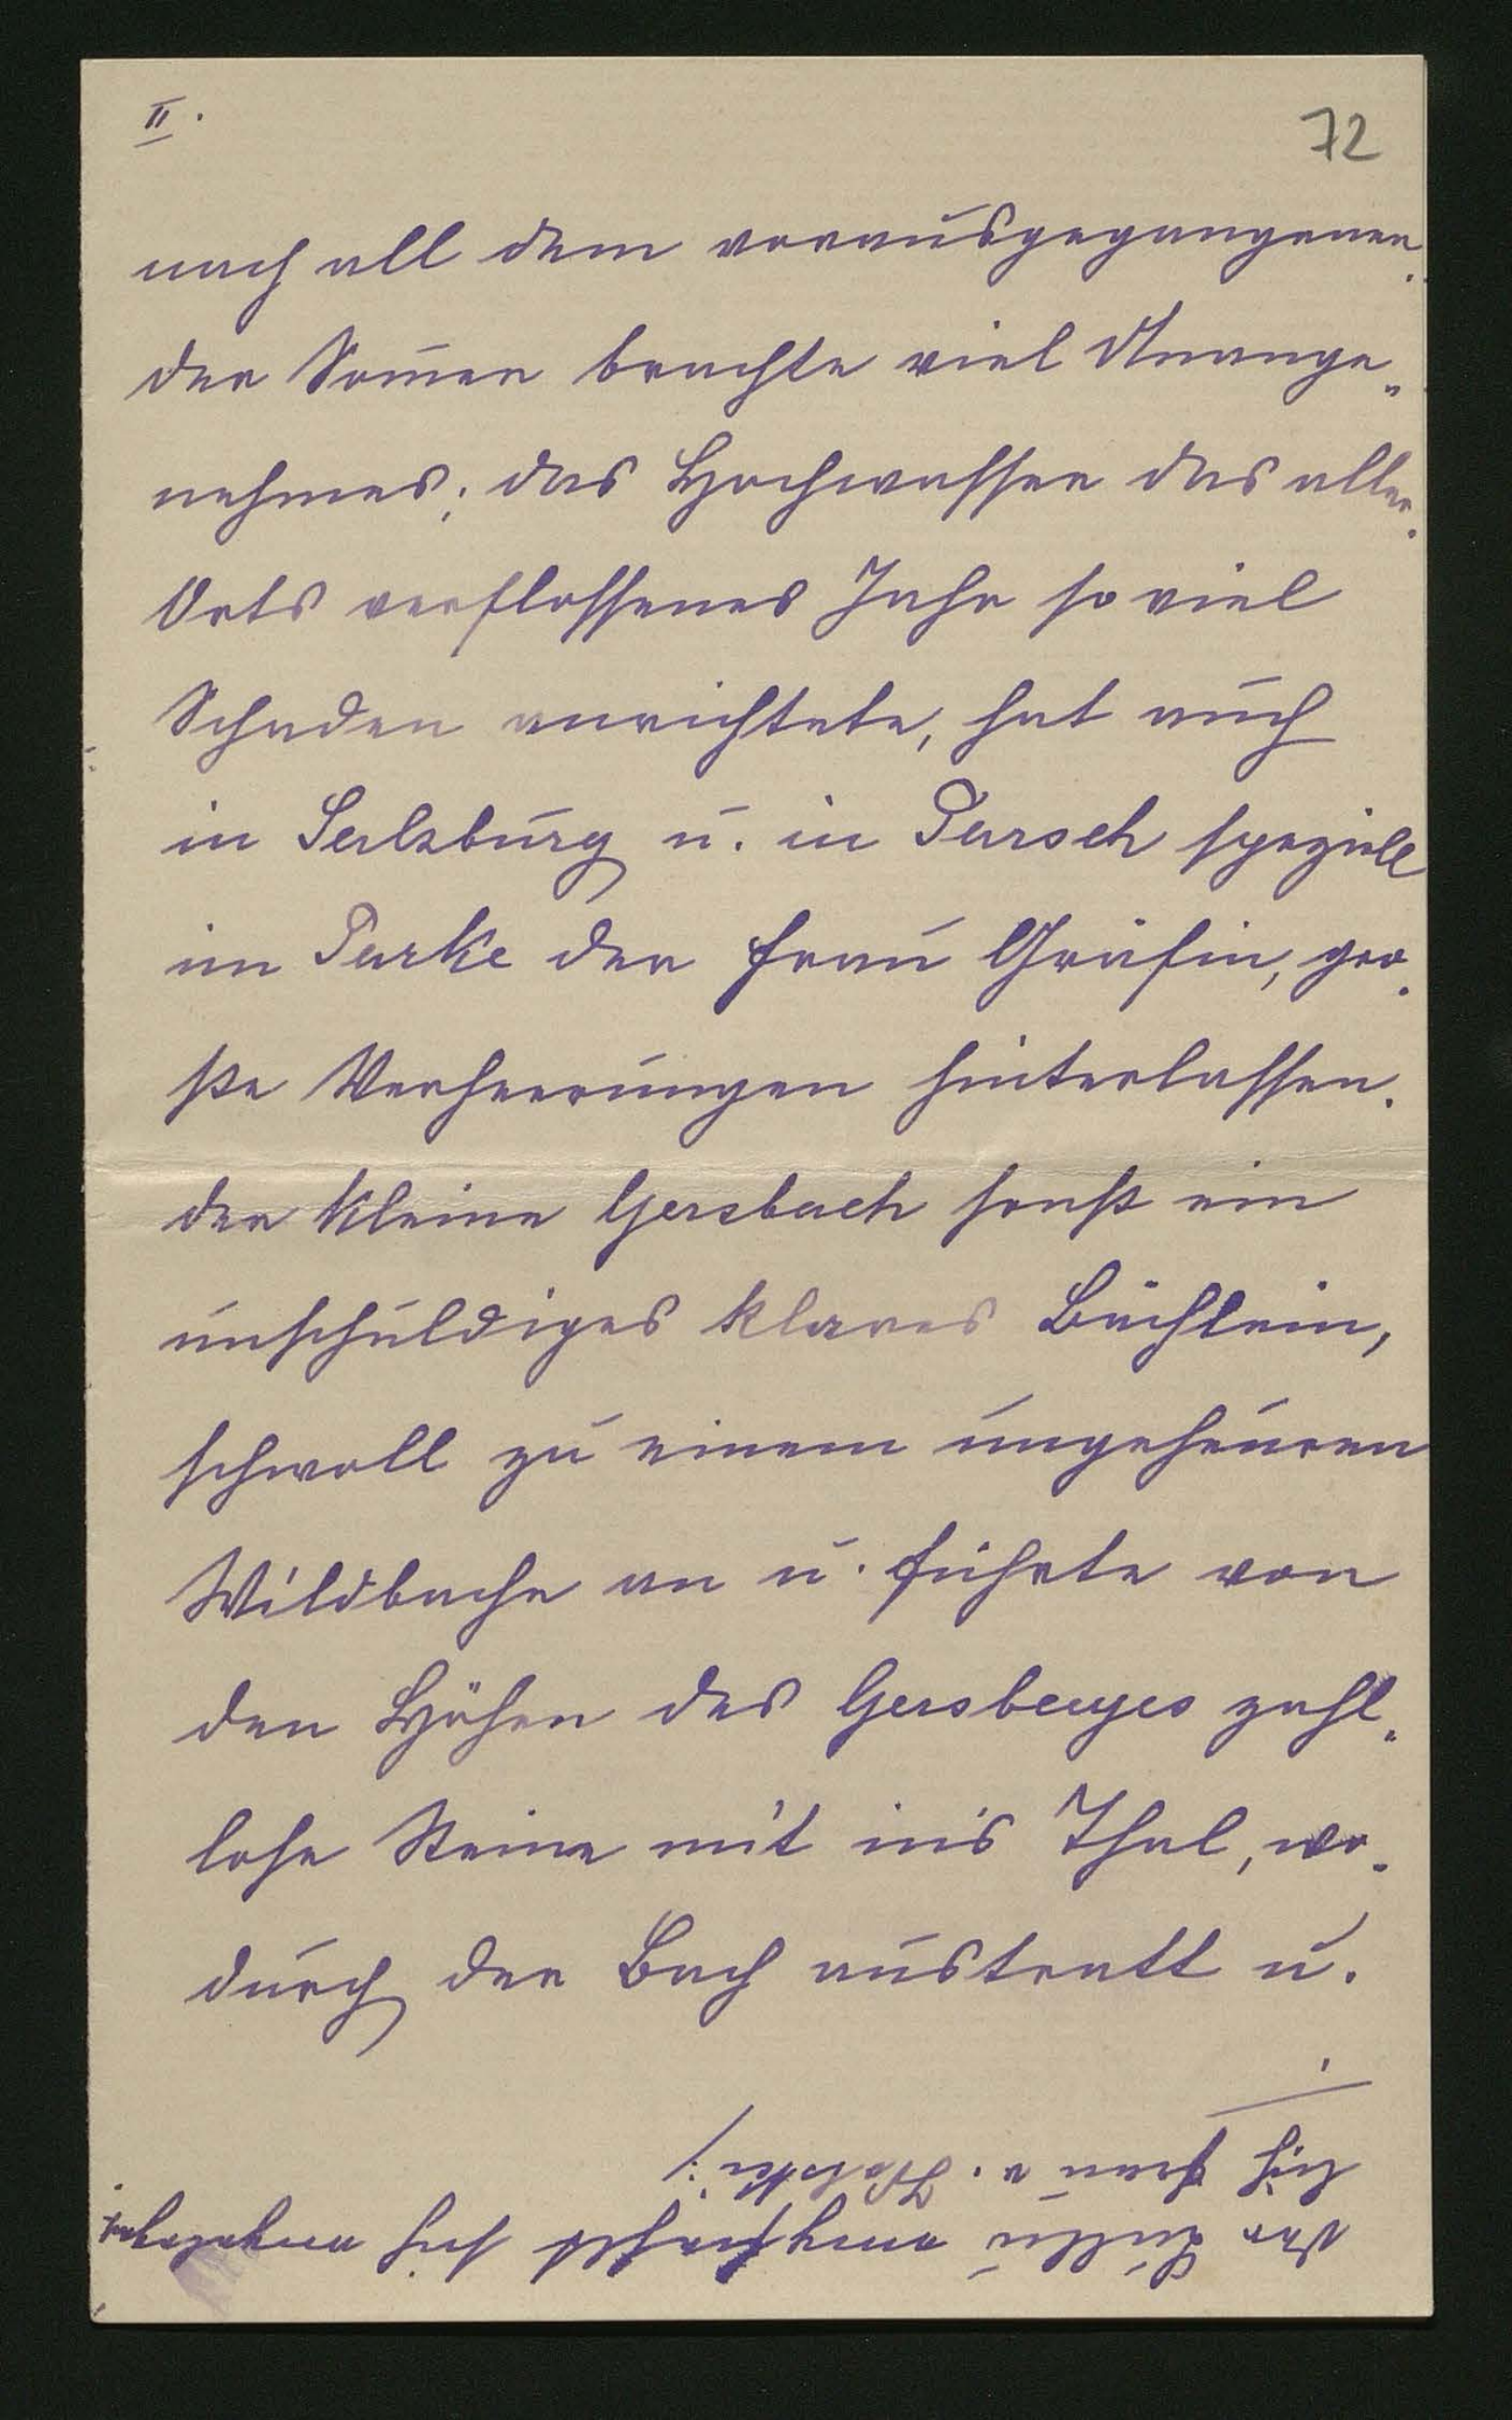 II.
72
nach all dem vorausgegangenen.
der Som̄er brachte viel Unange„
nehmes; das Hochwasser das aller.
Orts verflossenes Jahr so viel
Schaden anrichtete, hat auch
in Salzburg u. in Parsch speziell
im Parke der Frau Gräfin, gro.
ße Verheerungen hinterlassen.
der kleine Gersbach sonst ein
unschuldiges klares Bächlein,
schwoll zu einem ungeheuren
Wildbache an u. führte von
den Höhen des Gersberges zahl„
lose Steine mit in's Thal, wo„
durch der Bach austratt u.
./.
sich